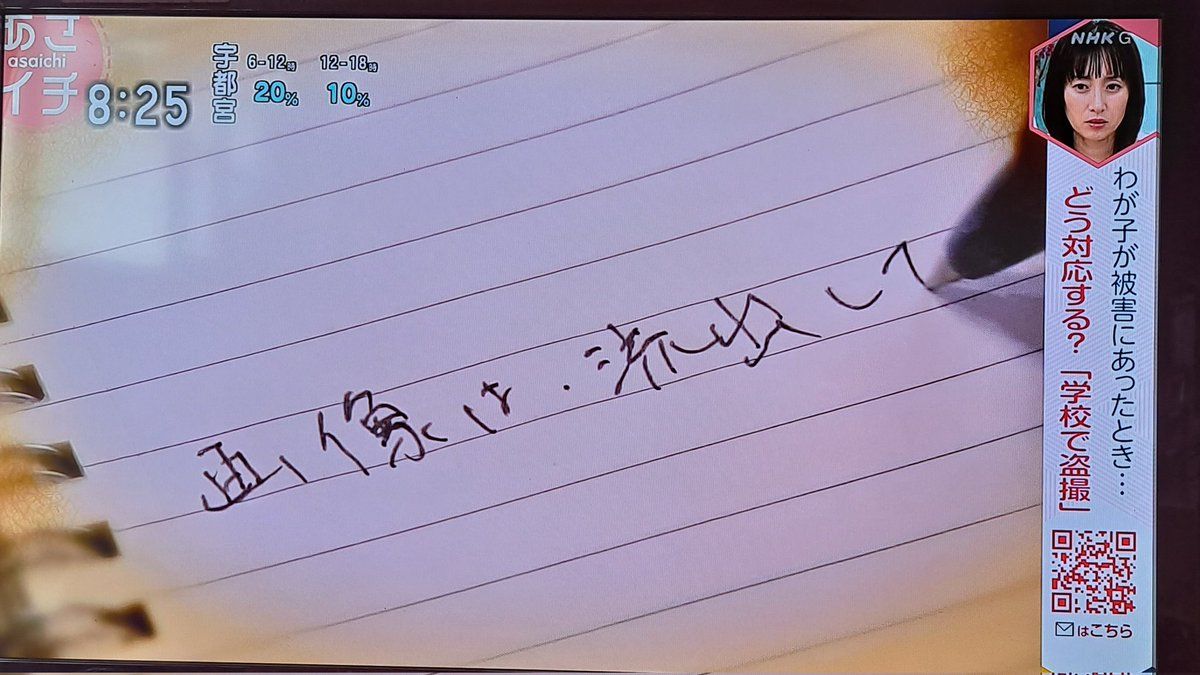 あさ
asaichi
イチ
8:25
宇都宮
6-12時 12-18時
20% 10%
NHK G
わが子が被害にあったとき…
どう対応する?「学校で盗撮」
はこちら
画像は.流出して